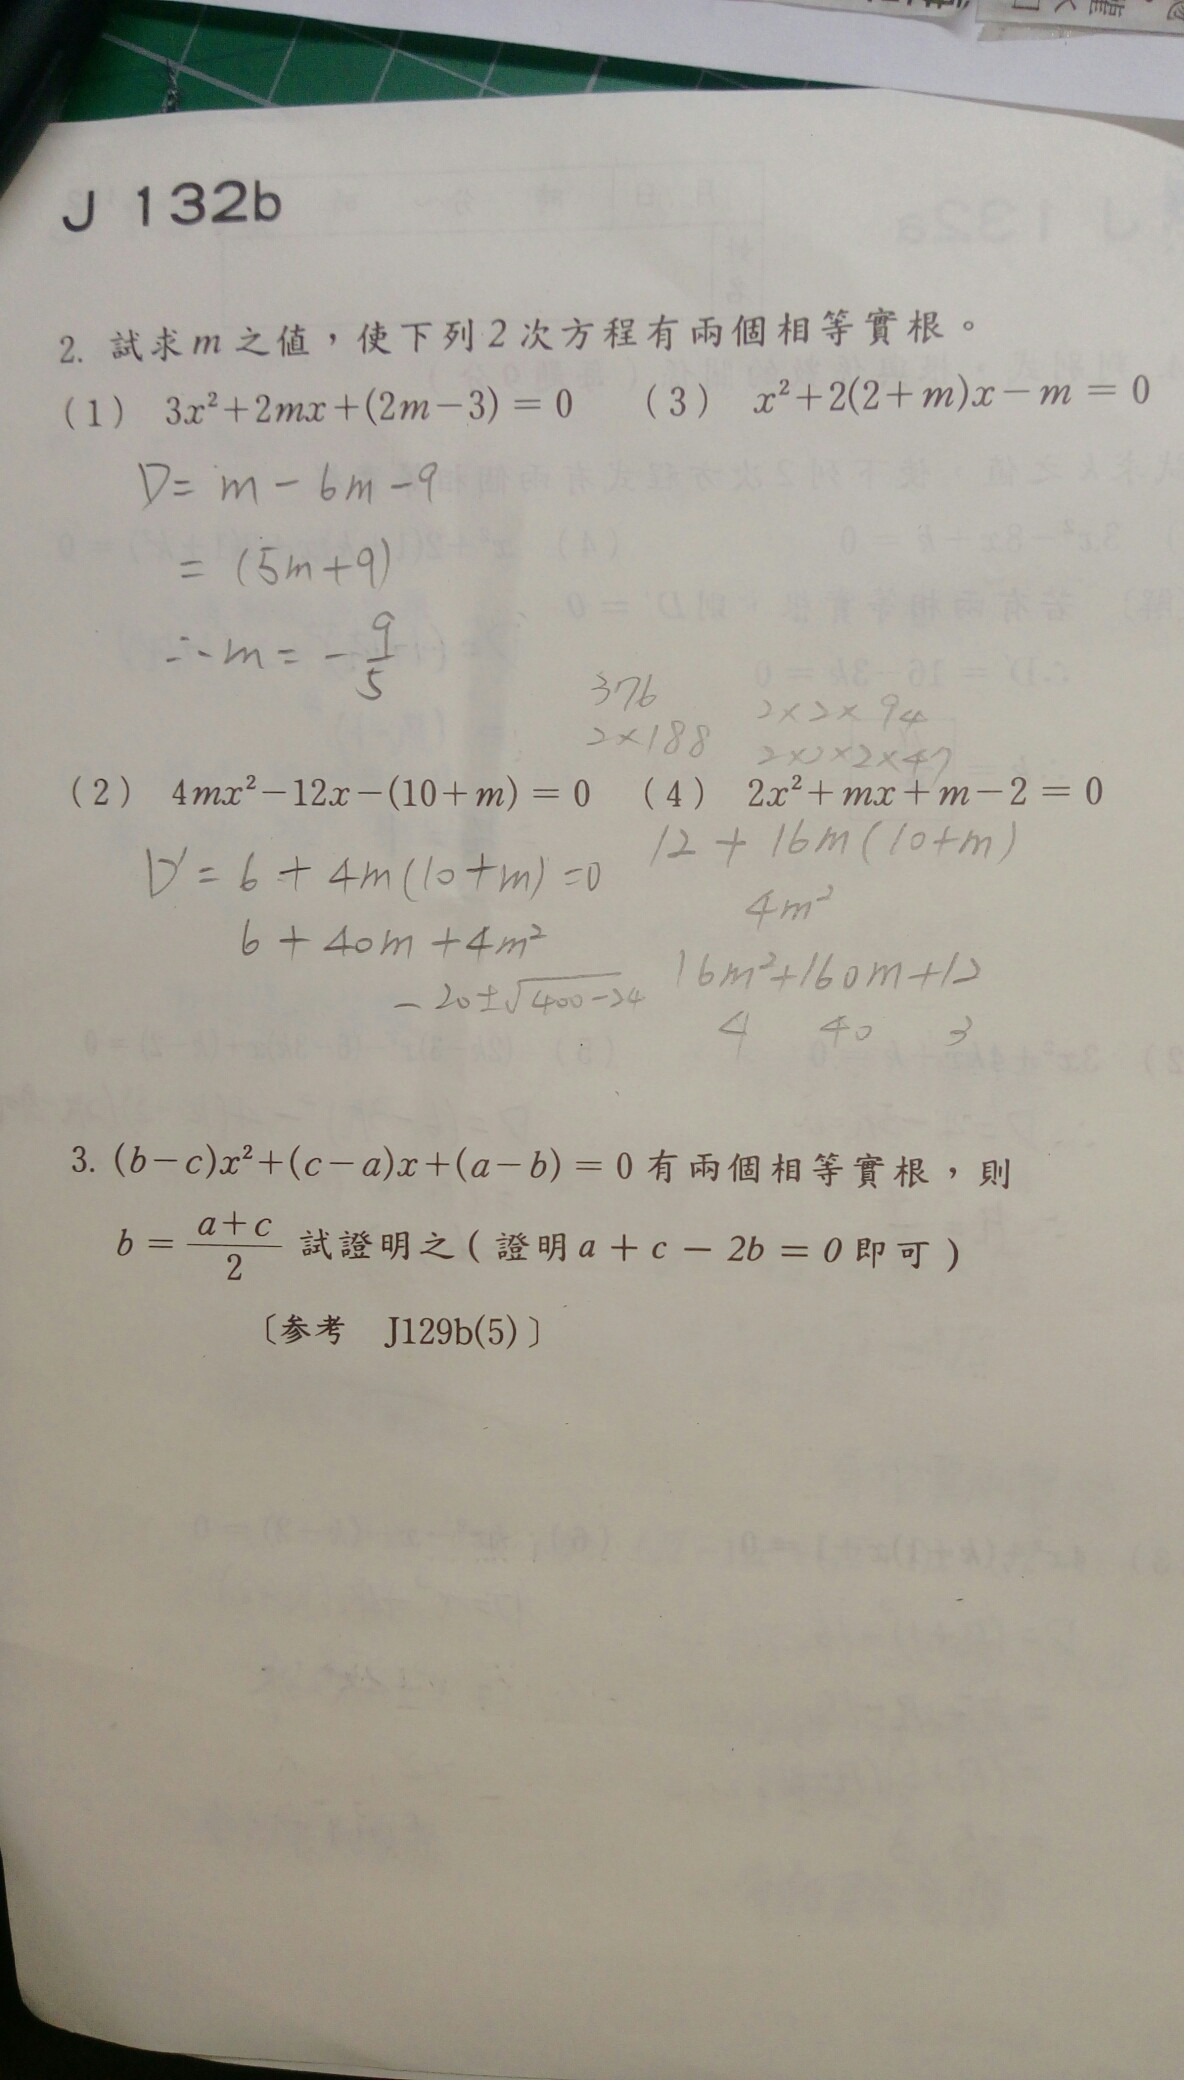 J 132b
2. 試求m之值，使下列2次方程有兩個相等實根。
(1) 3x²+2mx+(2m−3) = 0
D = m − 6m − 9
= (5m+9)
∴ m = − 9/5
(3) x²+2(2+m)x−m = 0
376
2×188
2×2×94
2×2×2×47
(2) 4mx²−12x−(10+m) = 0
D' = 6 + 4m(10+m) = 0
6 + 40m + 4m²
−20±√400−24
(4) 2x²+mx+m−2 = 0
12 + 16m(10+m)
4m²
16m²+160m+12
4 40 3
3. (b−c)x²+(c−a)x+(a−b) = 0 有兩個相等實根，則
b = a+c/2 試證明之(證明a + c − 2b = 0即可)
〔參考 J129b(5)〕